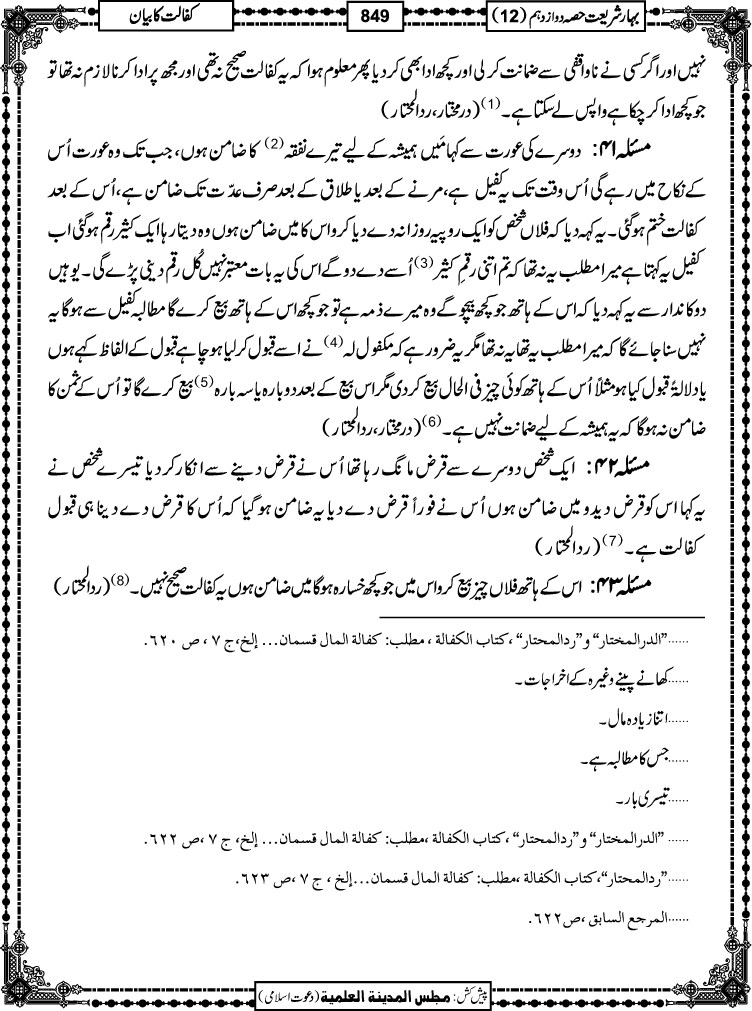 بہار شریعت حصہ دوازدہم (12)
849
کفالت کا بیان
نہیں اور اگر کسی نے ناواقفی سے ضمانت کرلی اور کچھ ادا بھی کردیا پھر معلوم ہوا کہ یہ کفالت صحیح نہ تھی اور مجھ پر ادا کرنا لازم نہ تھا تو
جو کچھ ادا کرچکا ہے واپس لے سکتا ہے۔(1) (درمختار، ردالمحتار)
مسئلہ ۴۱: دوسرے کی عورت سے کہا مَیں ہمیشہ کے لیے تیرے نفقہ(2) کا ضامن ہوں، جب تک وہ عورت اُس
کے نکاح میں رہے گی اُس وقت تک یہ کفیل ہے، مرنے کے بعد یا طلاق کے بعد صرف عدّت تک ضامن ہے، اُس کے بعد
کفالت ختم ہوگئی۔ یہ کہہ دیا کہ فلاں شخص کو ایک روپیہ روزانہ دے دیا کرو اس کا میں ضامن ہوں وہ دیتا رہا ایک کثیر رقم ہوگئی اب
کفیل یہ کہتا ہے میرا مطلب یہ نہ تھا کہ تم اتنی رقمِ کثیر(3) اُسے دے دو گے اس کی یہ بات معتبر نہیں کُل رقم دینی پڑے گی۔ یوہیں
دوکاندار سے یہ کہہ دیا کہ اس کے ہاتھ جو کچھ بیچو گے وہ میرے ذمہ ہے تو جو کچھ اس کے ہاتھ بیع کرے گا مطالبہ کفیل سے ہوگا یہ
نہیں سنا جائے گا کہ میرا مطلب یہ تھا یہ نہ تھا مگر یہ ضرور ہے کہ مکفول لہ(4) نے اسے قبول کرلیا ہو چاہے قبول کے الفاظ کہے ہوں
یا دلالۃً قبول کیا ہو مثلاً اُس کے ہاتھ کوئی چیز فی الحال بیع کردی مگر اس بیع کے بعد دوبارہ یا سہ بارہ(5) بیع کرے گا تو اُس کے ثمن کا
ضامن نہ ہوگا کہ یہ ہمیشہ کے لیے ضمانت نہیں ہے۔(6) (درمختار، ردالمحتار)
مسئلہ ۴۲: ایک شخص دوسرے سے قرض مانگ رہا تھا اُس نے قرض دینے سے انکار کردیا تیسرے شخص نے
یہ کہا اس کو قرض دیدو میں ضامن ہوں اُس نے فوراً قرض دے دیا یہ ضامن ہوگیا کہ اُس کا قرض دے دینا ہی قبول
کفالت ہے۔(7) (ردالمحتار)
مسئلہ ۴۳: اس کے ہاتھ فلاں چیز بیع کرو اس میں جو کچھ خسارہ ہوگا میں ضامن ہوں یہ کفالت صحیح نہیں۔(8) (ردالمحتار)
......”الدرالمختار“ و”ردالمحتار“، کتاب الکفالة، مطلب: کفالة المال قسمان... إلخ، ج ٧، ص ٦٢٠.
......کھانے پینے وغیرہ کے اخراجات۔
......اتنا زیادہ مال۔
......جس کا مطالبہ ہے۔
......تیسری بار۔
...... ”الدرالمختار“ و”ردالمحتار“، کتاب الکفالة، مطلب: کفالة المال قسمان... إلخ، ج ٧، ص ٦٢٢.
......”ردالمحتار“، کتاب الکفالة، مطلب: کفالة المال قسمان...إلخ، ج ٧، ص ٦٢٣.
......المرجع السابق، ص٦٢٢.
پیش کش: مجلس المدینة العلمیة (دعوت اسلامی)